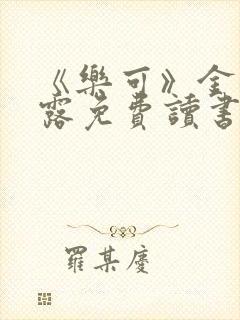 《樂可》金
露免費讀書
羅某慶